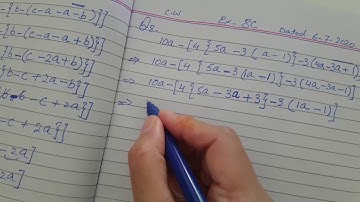 -{b-(c-a-a-b)}]
C.W Ex. 8C Dated 6-7-2020
{b-(c-a-a+b)}]
Q8.
{b-(c-2a+b)}]
10a-[4{5a-3(a-1)}-3(4a-3a+1)]
b-c+2a-b}]
⇒ 10a-[4{5a-3(a-1)}-3(4a-3a-1)]
-c+2a}]
⇒ 10a-[4{5a-3a+3}-3(1a-1)]
-c+2a}]
⇒
2a]
2a]